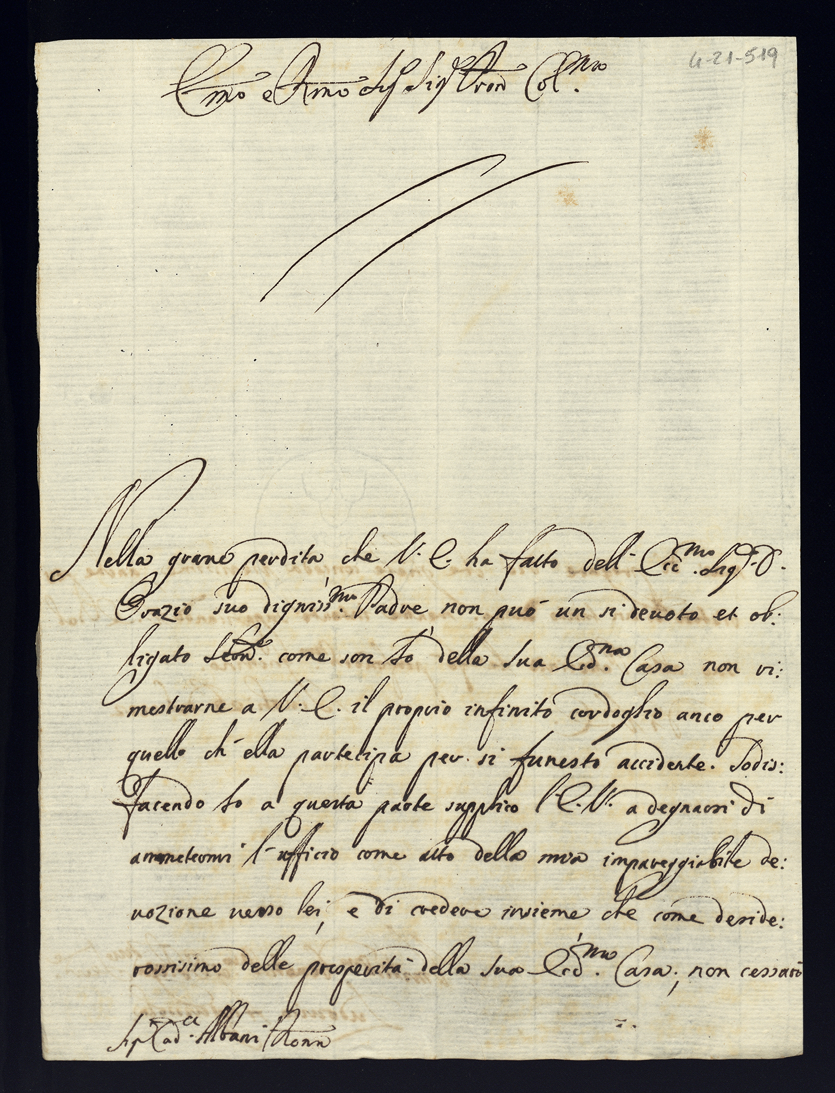 4-21-519
Emo e Rmo Sig.r Sig.r Pron Col.mo
Nella grave perdita che V. E. ha fatto dell' Ecc.mo Sig.r D.
Orazio suo digniss.mo Padre non può un si devoto et ob:
ligato Ser.re come son Io della sua Ecc.ma Casa non ri:
mostrarne a V. E. il proprio infinito cordoglio anco per
quello ch' ella partecipa per si funesto accidente. Sodis:
facendo Io a questa parte supplico l' E. V. a degnarsi di
ammetermi l' ufficio come atto della mia impareggiabile de:
vozione verso lei, e di credere insieme che come deside:
rosissimo delle prosperità della sua Ecc.ma Casa, non cessarò
Sig. Card.le Albani Roma